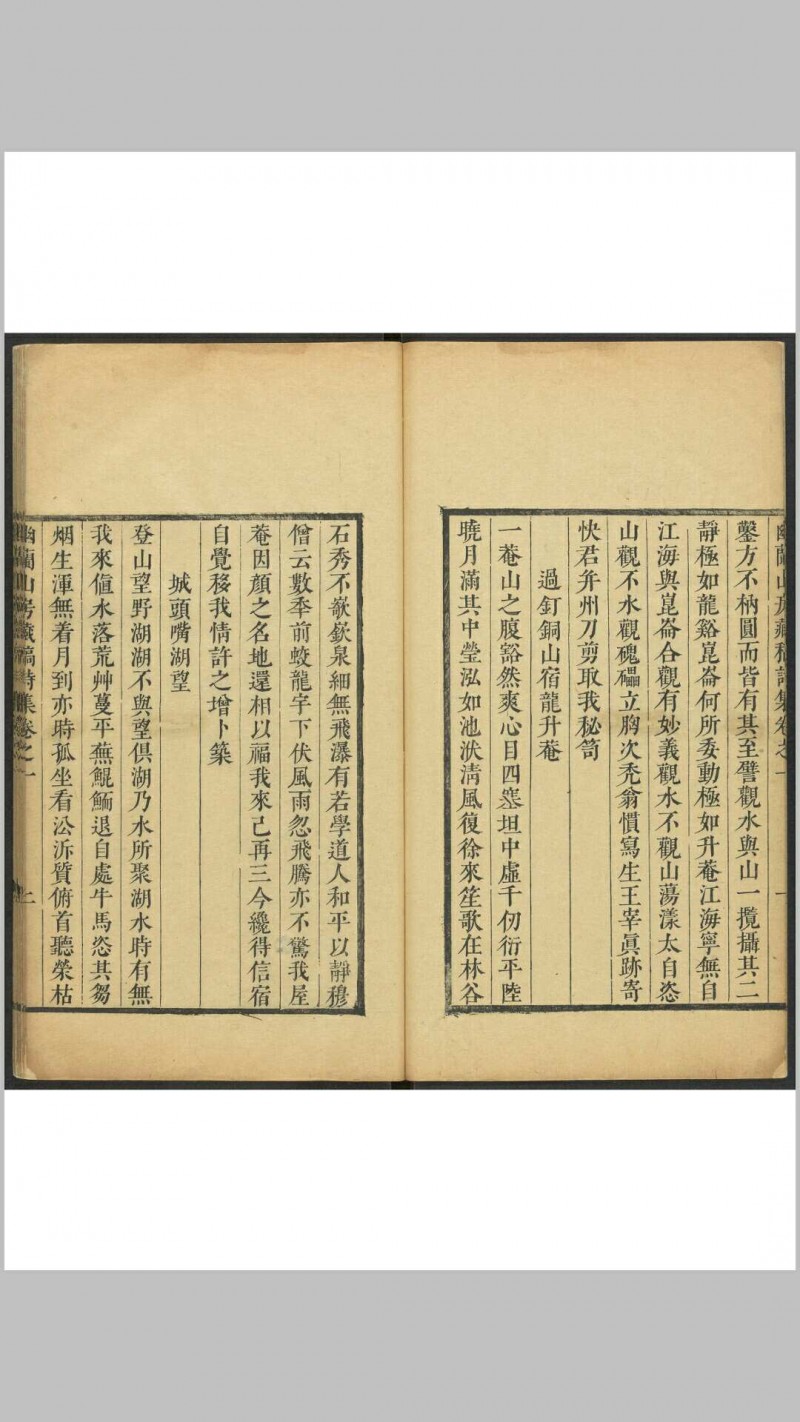 幽蘭山房藏稿詩集卷之一
鑿方不枘圓而皆有其至譬觀水與山一攬攝其二
靜極如龍谿崑崙何所委動極如升菴江海寧無自
江海與崑崙合觀有妙義觀水不觀山蕩漾太自恣
山觀不水觀磈礧立胸次禿翁慣寫生王宰眞跡寄
快君并州刀剪取我秘笥
過釘銅山宿龍升菴
一菴山之腹豁然爽心目四塞坦中虛千仞衍平陸
曉月滿其中瑩泓如池洑淸風復徐來笙歌在林谷
石秀不嶔欽泉細無飛瀑有若學道人和平以靜穆
僧云數季前蛟龍宇下伏風雨忽飛騰亦不驚我屋
菴因顏之名地還相以福我來已再三今纔得信宿
自覺移我情許之增卜築
城頭嘴湖望
登山望野湖湖不與望俱湖乃水所聚湖水時有無
我來値水落荒艸蔓平蕪鯤鮞退自處牛馬恣其芻
烟生渾無着月到亦時孤坐看㳂泝質俯首聽榮枯
幽蘭山房藏稿詩集卷之一